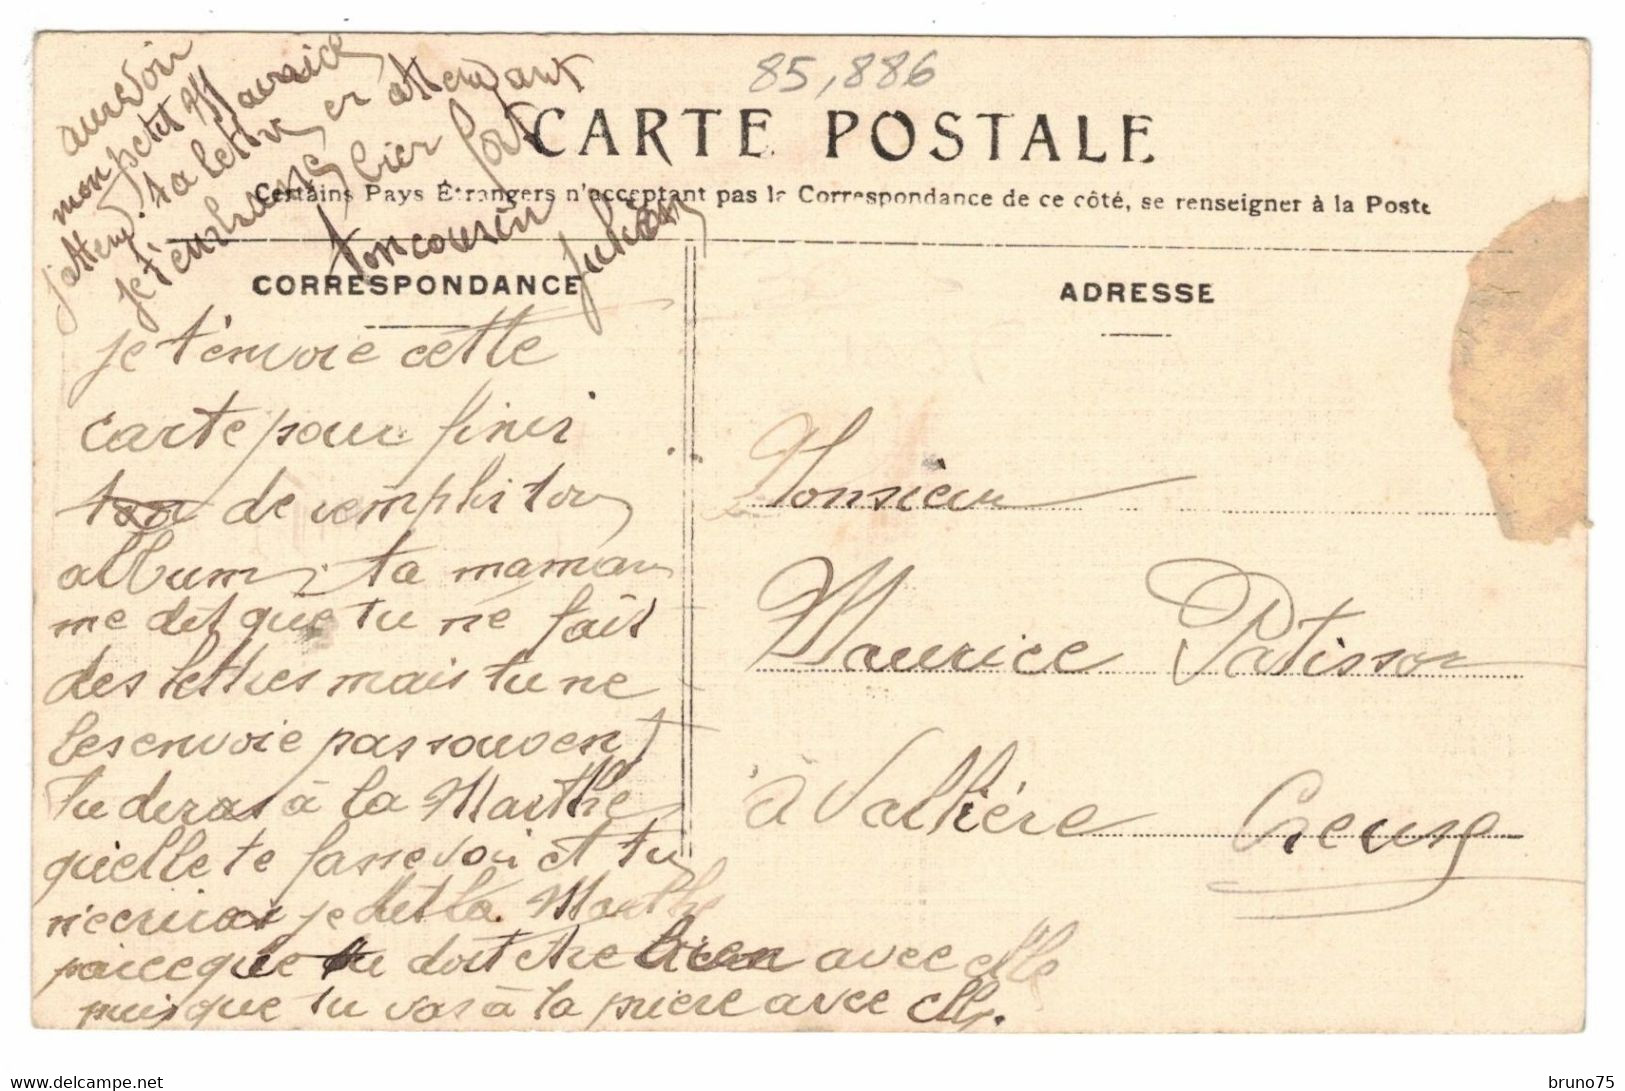 85,886
CARTE POSTALE
Certains Pays Étrangers n'acceptant pas la Correspondance de ce côté, se renseigner à la Poste
CORRESPONDANCE
je t'envoie cette
carte pour finir
ton de remplir ton
album, ta maman
me dit que tu ne fait
des lettres mais tu ne
les envoie pas souvent
tu diras à la Marthe
qu'elle te fasse voir et tu
m'ecriras je dit la Marthe
parceque tu doit etre bien avec elle
puisque tu vas à la priere avec elle.
aurevoir
mon petit Maurice
j'attend ta lettre en attendant
je t'embrasse bien fort
ton cousin
Julien
ADRESSE
Monsieur
Maurice Patisson
à Vallière Creuse
bruno75